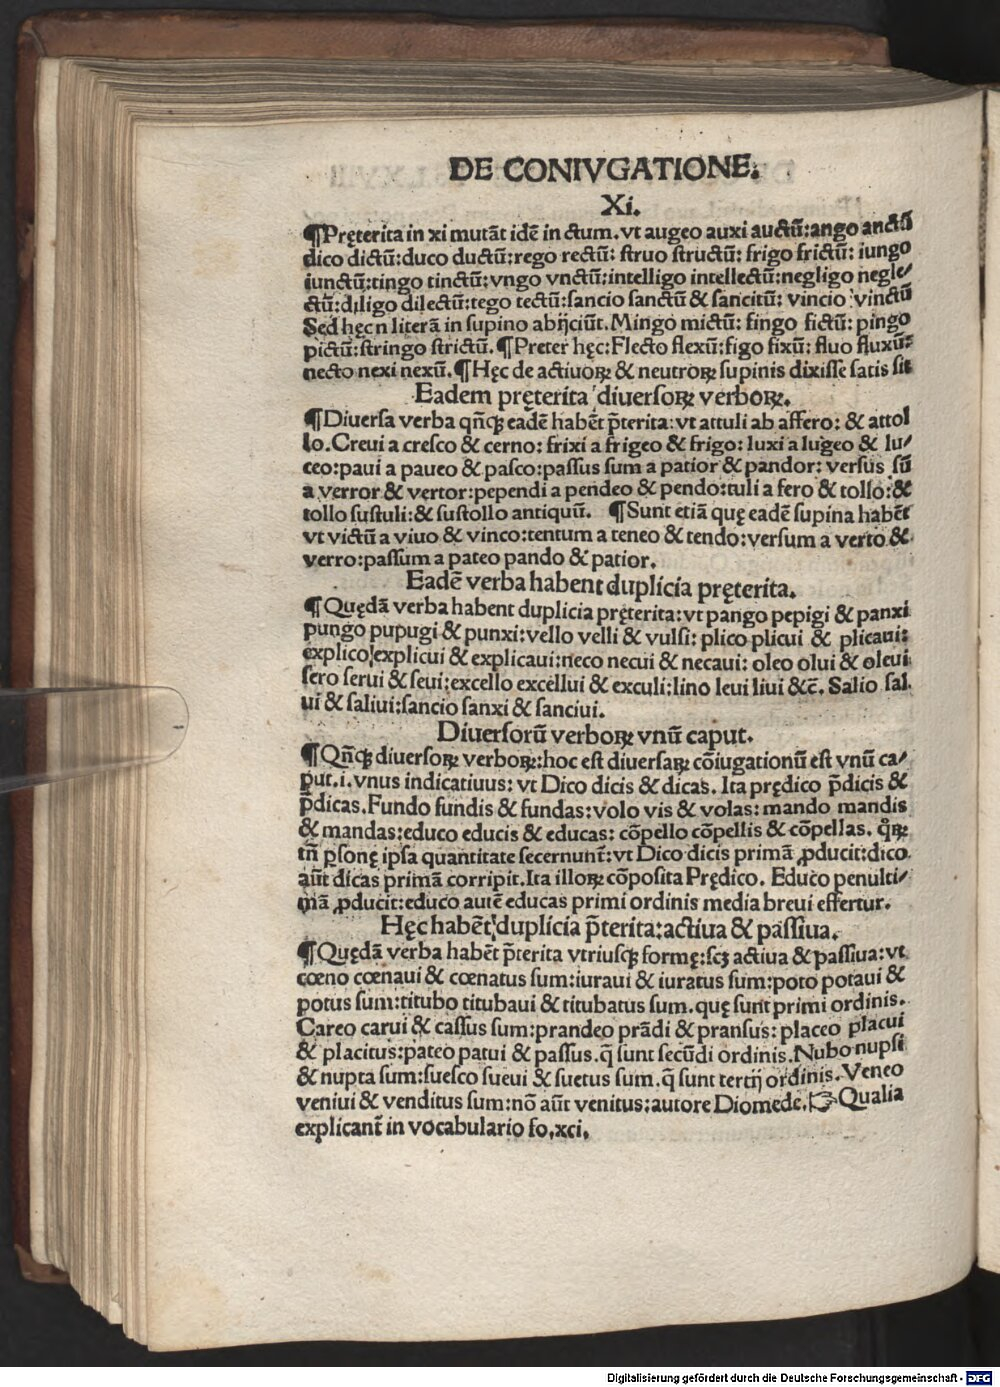 DE CONIVGATIONE.
Xi.
¶Pręterita in xi mutāt idē in ctum. vt augeo auxi auctū:ango anctū
dico dictū:duco ductū:rego rectū: struo structū: frigo frictū: iungo
iunctū:tingo tinctū:vngo vnctū:intelligo intellectū:negligo negle⸗
ctū:diligo dilectū:tego tectū:sancio sanctū & sancitū: vincio vinctū
Sed hęc n literā in supino abijciūt. Mingo mictū: fingo fictū: pingo
pictū:stringo strictū.¶Preter hęc:Flecto flexū:figo fixū: fluo fluxū:
necto nexi nexū.¶Hęc de actiuoꝝ & neutroꝝ supinis dixisse satis sit
Eadem pręterita diuersoꝝ verboꝝ.
¶Diuersa verba qñcꝫ eadē habēt p̄terita:vt attuli ab affero: & attol
lo.Creui a cresco & cerno: frixi a frigeo & frigo: luxi a lugeo & lu⸗
ceo:paui a paueo & pasco:passus sum a patior & pandor: versus sū
a verror & vertor:pependi a pendeo & pendo:tuli a fero & tollo:&
tollo sustuli:& sustollo antiquū. ¶Sunt etiā quę eadē supina habēt
vt victū a viuo & vinco:tentum a teneo & tendo:versum a verto &
verro:passum a pateo pando & patior.
Eadē verba habent duplicia pręterita.
¶Quędā verba habent duplicia pręterita:vt pango pepigi & panxi
pungo pupugi & punxi:vello velli & vulsi: plico plicui & plicaui:
explico explicui & explicaui:neco necui & necaui: oleo olui & oleui
sero serui & seui:excello excellui & exculi:lino leui liui &c̄. Salio sal
ui & saliui:sancio sanxi & sanciui.
Diuersorū verboꝝ vnū caput.
¶Qñcꝫ diuersoꝝ verboꝝ:hoc est diuersaꝝ cōiugationū est vnū ca⸗
put.i.vnus indicatiuus: vt Dico dicis & dicas. Ita prędico p̄dicis &
p̄dicas.Fundo fundis & fundas:volo vis & volas: mando mandis
& mandas:educo educis & educas: cōpello cōpellis & cōpellas. qͦꝝ
tñ ꝑsonę ipsa quantitate secernunt̄:vt Dico dicis primā ꝓducit:dico
aūt dicas primā corripit.Ita illoꝝ cōposita Prędico. Educo penulti⸗
mā ꝓducit:educo autē educas primi ordinis media breui effertur.
Hęc habēt duplicia p̄terita:actiua & passiua.
¶Quędā verba habēt p̄terita vtriusqꝫ formę:scꝫ actiua & passiua:vt
cœno cœnaui & cœnatus sum:iuraui & iuratus sum:poto potaui &
potus sum:titubo titubaui & titubatus sum.quę sunt primi ordinis.
Careo carui & cassus sum:prandeo prādi & pransus: placeo placui
& placitus:pateo patui & passus.q̄ sunt secūdi ordinis.Nubo nupsi
& nupta sum:suesco sueui & suetus sum.q̄ sunt tertij ordinis.Veneo
veniui & venditus sum:nō aūt venitus:autore Diomede.☞Qualia
explicant̄ in vocabulario fo.xci.
Digitalisierung gefördert durch die Deutsche Forschungsgemeinschaft - DFG